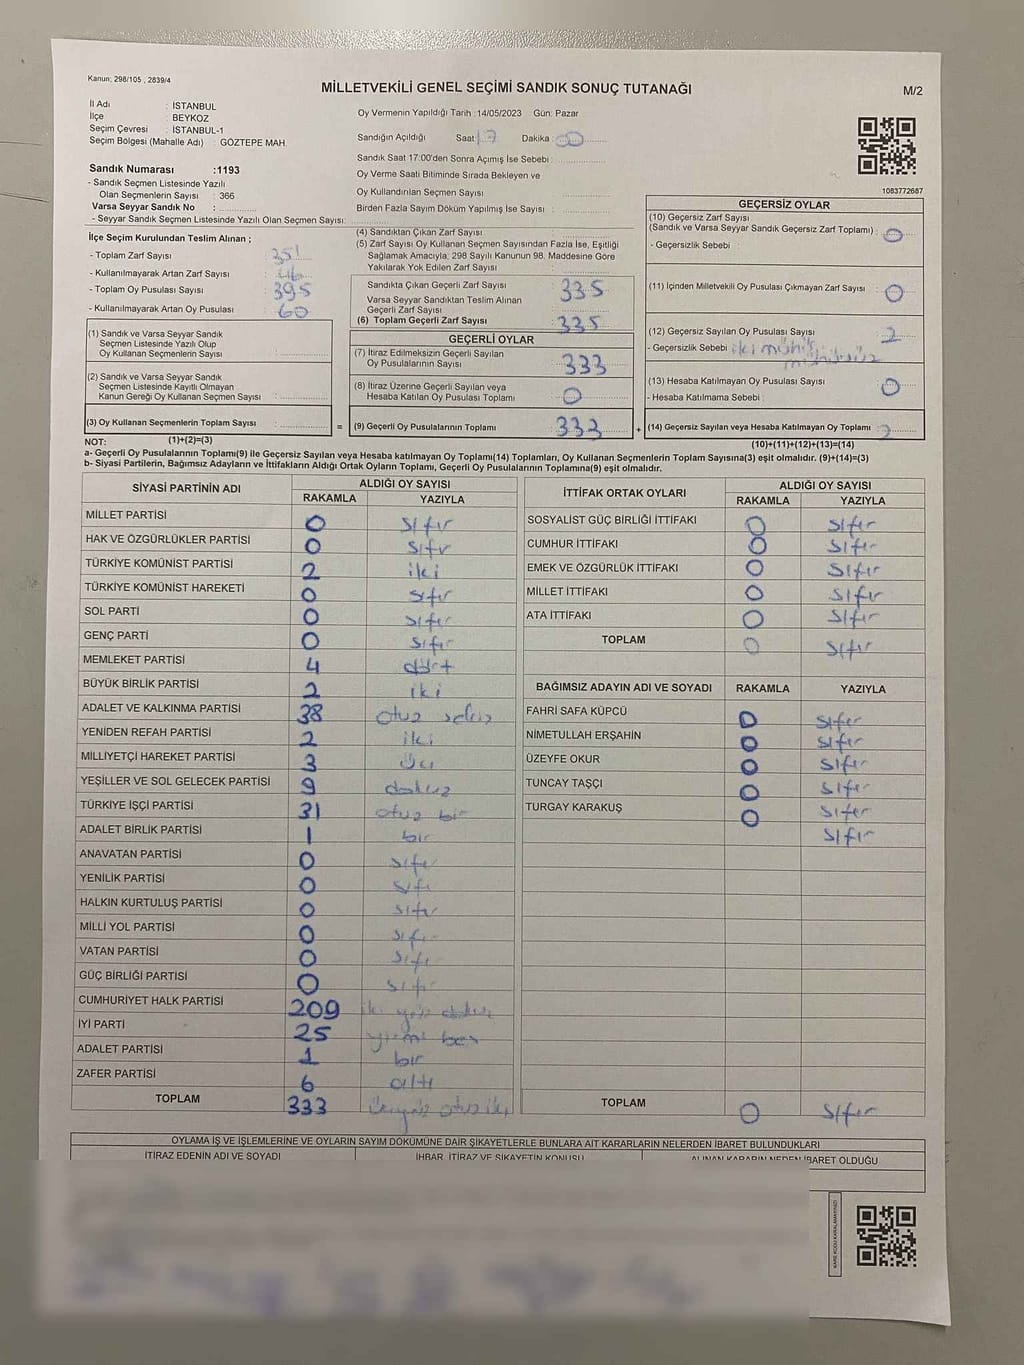 Kanun: 298/105 , 2839/4
MİLLETVEKİLİ GENEL SEÇİMİ SANDIK SONUÇ TUTANAĞI
M/2
İl Adı : İSTANBUL
İlçe : BEYKOZ
Seçim Çevresi : İSTANBUL-1
Seçim Bölgesi (Mahalle Adı) : GÖZTEPE MAH.
Oy Vermenin Yapıldığı Tarih :14/05/2023 Gün: Pazar
Sandığın Açıldığı Saat 17 Dakika : 00
Sandık Saat 17:00'den Sonra Açımış İse Sebebi :
Oy Verme Saati Bitiminde Sırada Bekleyen ve
Oy Kullandırılan Seçmen Sayısı :
Birden Fazla Sayım Döküm Yapılmış İse Sayısı :
1083772687
Sandık Numarası :1193
- Sandık Seçmen Listesinde Yazılı
Olan Seçmenlerin Sayısı : 366
Varsa Seyyar Sandık No :
- Seyyar Sandık Seçmen Listesinde Yazılı Olan Seçmen Sayısı:
İlçe Seçim Kurulundan Teslim Alınan ;
- Toplam Zarf Sayısı : 351
- Kullanılmayarak Artan Zarf Sayısı : 46
- Toplam Oy Pusulası Sayısı : 395
- Kullanılmayarak Artan Oy Pusulası : 60
(1) Sandık ve Varsa Seyyar Sandık
Seçmen Listesinde Yazılı Olup
Oy Kullanan Seçmenlerin Sayısı :
(2) Sandık ve Varsa Seyyar Sandık
Seçmen Listesinde Kayıtlı Olmayan
Kanun Gereği Oy Kullanan Seçmen Sayısı :
(3) Oy Kullanan Seçmenlerin Toplam Sayısı :
(1)+(2)=(3)
(4) Sandıktan Çıkan Zarf Sayısı :
(5) Zarf Sayısı Oy Kullanan Seçmen Sayısından Fazla İse, Eşitliği
Sağlamak Amacıyla; 298 Sayılı Kanunun 98. Maddesine Göre
Yakılarak Yok Edilen Zarf Sayısı :
Sandıkta Çıkan Geçerli Zarf Sayısı : 335
Varsa Seyyar Sandıktan Teslim Alınan
Geçerli Zarf Sayısı :
(6) Toplam Geçerli Zarf Sayısı : 335
GEÇERLİ OYLAR
(7) İtiraz Edilmeksizin Geçerli Sayılan
Oy Pusulalarının Sayısı : 333
(8) İtiraz Üzerine Geçerli Sayılan veya
Hesaba Katılan Oy Pusulası Toplamı : 0
= (9) Geçerli Oy Pusulalarının Toplamı : 333 +
GEÇERSİZ OYLAR
(10) Geçersiz Zarf Sayısı
(Sandık ve Varsa Seyyar Sandık Geçersiz Zarf Toplamı) : 0
- Geçersizlik Sebebi :
(11) İçinden Milletvekili Oy Pusulası Çıkmayan Zarf Sayısı : 0
(12) Geçersiz Sayılan Oy Pusulası Sayısı : 2
- Geçersizlik Sebebi : iki
(13) Hesaba Katılmayan Oy Pusulası Sayısı : 0
- Hesaba Katılmama Sebebi :
(14) Geçersiz Sayılan veya Hesaba Katılmayan Oy Toplamı : 2
(10)+(11)+(12)+(13)=(14)
NOT:
a- Geçerli Oy Pusulalarının Toplamı(9) ile Geçersiz Sayılan veya Hesaba katılmayan Oy Toplamı(14) Toplamları, Oy Kullanan Seçmenlerin Toplam Sayısına(3) eşit olmalıdır. (9)+(14)=(3)
b- Siyasi Partilerin, Bağımsız Adayların ve İttifakların Aldığı Ortak Oyların Toplamı, Geçerli Oy Pusulalarının Toplamına(9) eşit olmalıdır.
SİYASİ PARTİNİN ADI ALDIĞI OY SAYISI
RAKAMLA YAZIYLA
MİLLET PARTİSİ 0 sıfır
HAK VE ÖZGÜRLÜKLER PARTİSİ 0 sıfır
TÜRKİYE KOMÜNİST PARTİSİ 2 iki
TÜRKİYE KOMÜNİST HAREKETİ 0 sıfır
SOL PARTİ 0 sıfır
GENÇ PARTİ 0 sıfır
MEMLEKET PARTİSİ 4 dört
BÜYÜK BİRLİK PARTİSİ 2 iki
ADALET VE KALKINMA PARTİSİ 38 otuz sekiz
YENİDEN REFAH PARTİSİ 2 iki
MİLLİYETÇİ HAREKET PARTİSİ 3 üç
YEŞİLLER VE SOL GELECEK PARTİSİ 9 dokuz
TÜRKİYE İŞÇİ PARTİSİ 31 otuz bir
ADALET BİRLİK PARTİSİ 1 bir
ANAVATAN PARTİSİ 0 sıfır
YENİLİK PARTİSİ 0 sıfır
HALKIN KURTULUŞ PARTİSİ 0 sıfır
MİLLİ YOL PARTİSİ 0 sıfır
VATAN PARTİSİ 0 sıfır
GÜÇ BİRLİĞİ PARTİSİ 0 sıfır
CUMHURİYET HALK PARTİSİ 209 iki yüz dokuz
İYİ PARTİ 25 yirmi beş
ADALET PARTİSİ 1 bir
ZAFER PARTİSİ 6 altı
TOPLAM 333 otuz
İTTİFAK ORTAK OYLARI ALDIĞI OY SAYISI
RAKAMLA YAZIYLA
SOSYALİST GÜÇ BİRLİĞİ İTTİFAKI 0 sıfır
CUMHUR İTTİFAKI 0 sıfır
EMEK VE ÖZGÜRLÜK İTTİFAKI 0 sıfır
MİLLET İTTİFAKI 0 sıfır
ATA İTTİFAKI 0 sıfır
TOPLAM 0 sıfır
BAĞIMSIZ ADAYIN ADI VE SOYADI RAKAMLA YAZIYLA
FAHRİ SAFA KÜPCÜ 0 sıfır
NİMETULLAH ERŞAHİN 0 sıfır
ÜZEYFE OKUR 0 sıfır
TUNCAY TAŞÇI 0 sıfır
TURGAY KARAKUŞ 0 sıfır
sıfır
TOPLAM 0 sıfır
OYLAMA İŞ VE İŞLEMLERİNE VE OYLARIN SAYIM DÖKÜMÜNE DAİR ŞİKAYETLERLE BUNLARA AİT KARARLARIN NELERDEN İBARET BULUNDUKLARI
İTİRAZ EDENİN ADI VE SOYADI İHBAR, İTİRAZ VE ŞİKAYETİN KONUSU ALINAN KARARIN NEDEN İBARET OLDUĞU
KARE KODU KARALAMAYINIZ!